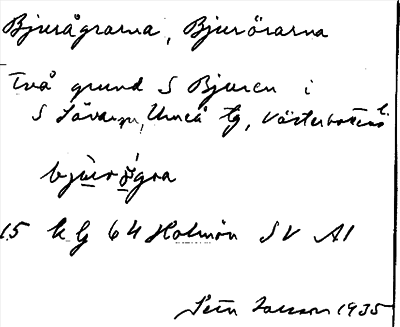 Bjurågrarna, Bjurörarna
Två grund S Bjuren i
S Sävar sn, Umeå tg, Västerbottens l.
bjùrǫ̀gra
15 k g 64 Holmön SV A1
Sten 1935